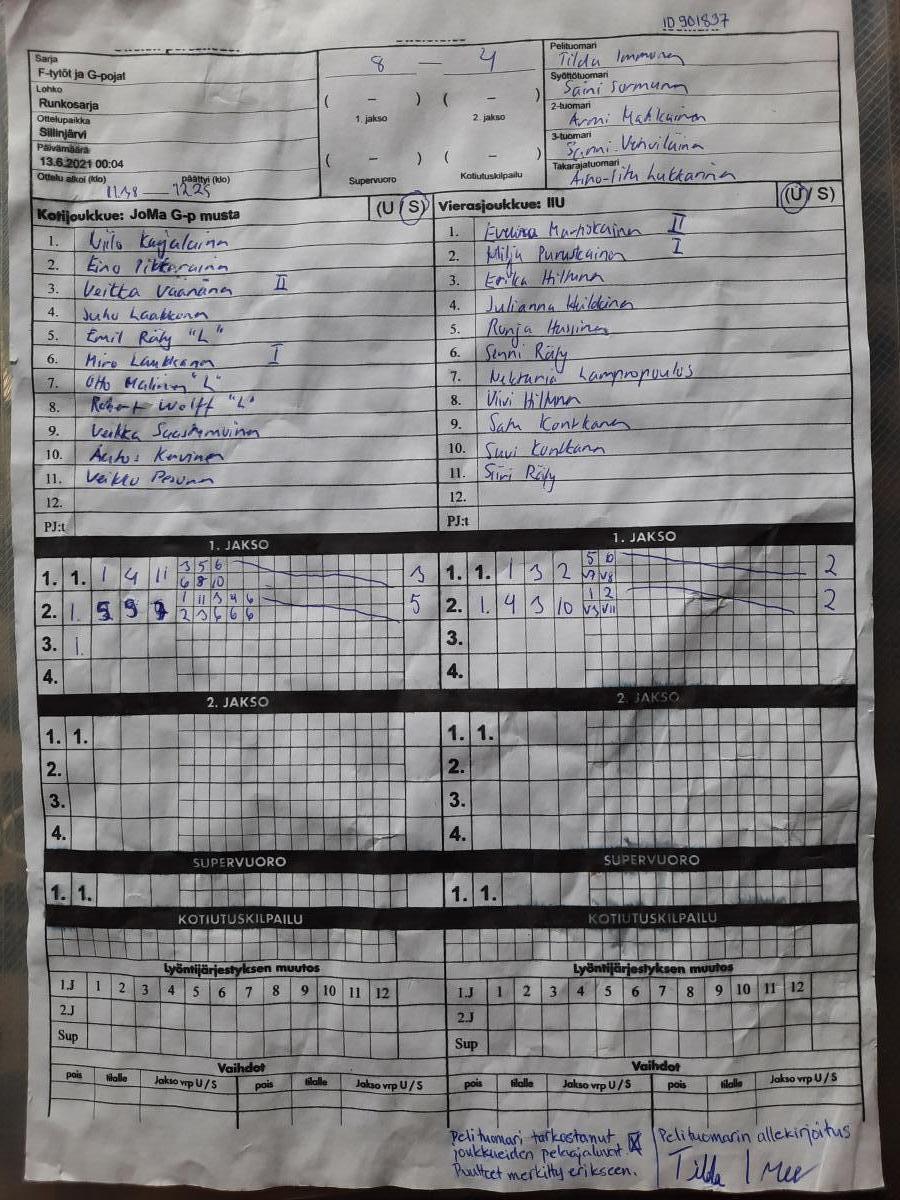 ID 901837
Sarja
F-tytöt ja G-pojat
Lohko
Runkosarja
Ottelupaikka
Siilinjärvi
Päivämäärä
13.6.2021 00:04
Ottelu alkoi (klo) päättyi (klo)
11.48 — 12.25
8 — 4
( – ) ( – )
1. jakso 2. jakso
( – ) ( – )
Supervuoro Kotiutuskilpailu
Pelituomari
Tilda Immonen
Syöttötuomari
Saini Sormunen
2-tuomari
Armi Matikainen
3-tuomari
Sanni Vehviläinen
Takarajatuomari
Aino-Iitu Lukkarinen
Kotijoukkue: JoMa G-p musta (U / S)
1. Viilo Karjalainen
2. Eino Pikkarainen
3. Veikka Väänänen II
4. Juho Laakkonen
5. Emil Räty "L"
6. Miro Laukkanen I
7. Otto Malinen "L"
8. Robert Wolff "L"
9. Veikka Saastamoinen
10. Kervinen
11. Veikko Pesonen
12.
PJ:t
Vierasjoukkue: IIU (U / S)
1. Eveliina Martiskainen II
2. Milja Puruskainen I
3. Erika Hiltunen
4. Julianna Huikkinen
5. Ronja Hassinen
6. Senni Räty
7. Nektaria Lampropoulos
8. Viivi Hiltunen
9. Satu Kontkanen
10. Suvi Kontkanen
11. Siiri Räty
12.
PJ:t
1. JAKSO 1. JAKSO
1. 1. 1 4 11 3 5 6 3
6 8 10
2. 1. 5 9 9 1 11 3 4 6 5
2 3 6 6 6
3. 1.
4.
1. 1. 1 3 2 5 10 2
V7 V8
2. 1. 4 3 10 1 2 2
V3 V11
3.
4.
2. JAKSO 2. JAKSO
1. 1. 1. 1.
2. 2.
3. 3.
4. 4.
SUPERVUORO SUPERVUORO
1. 1. 1. 1.
KOTIUTUSKILPAILU KOTIUTUSKILPAILU
Lyöntijärjestyksen muutos Lyöntijärjestyksen muutos
1.J 1 2 3 4 5 6 7 8 9 10 11 12 1.J 1 2 3 4 5 6 7 8 9 10 11 12
2.J 2.J
Sup Sup
Vaihdot Vaihdot
pois tilalle Jakso vrp U / S pois tilalle Jakso vrp U / S pois tilalle Jakso vrp U / S pois tilalle Jakso vrp U / S
Pelituomari tarkastanut
joukkueiden pelaajaluvat. X
Puutteet merkitty erikseen.
Pelituomarin allekirjoitus
Tilda